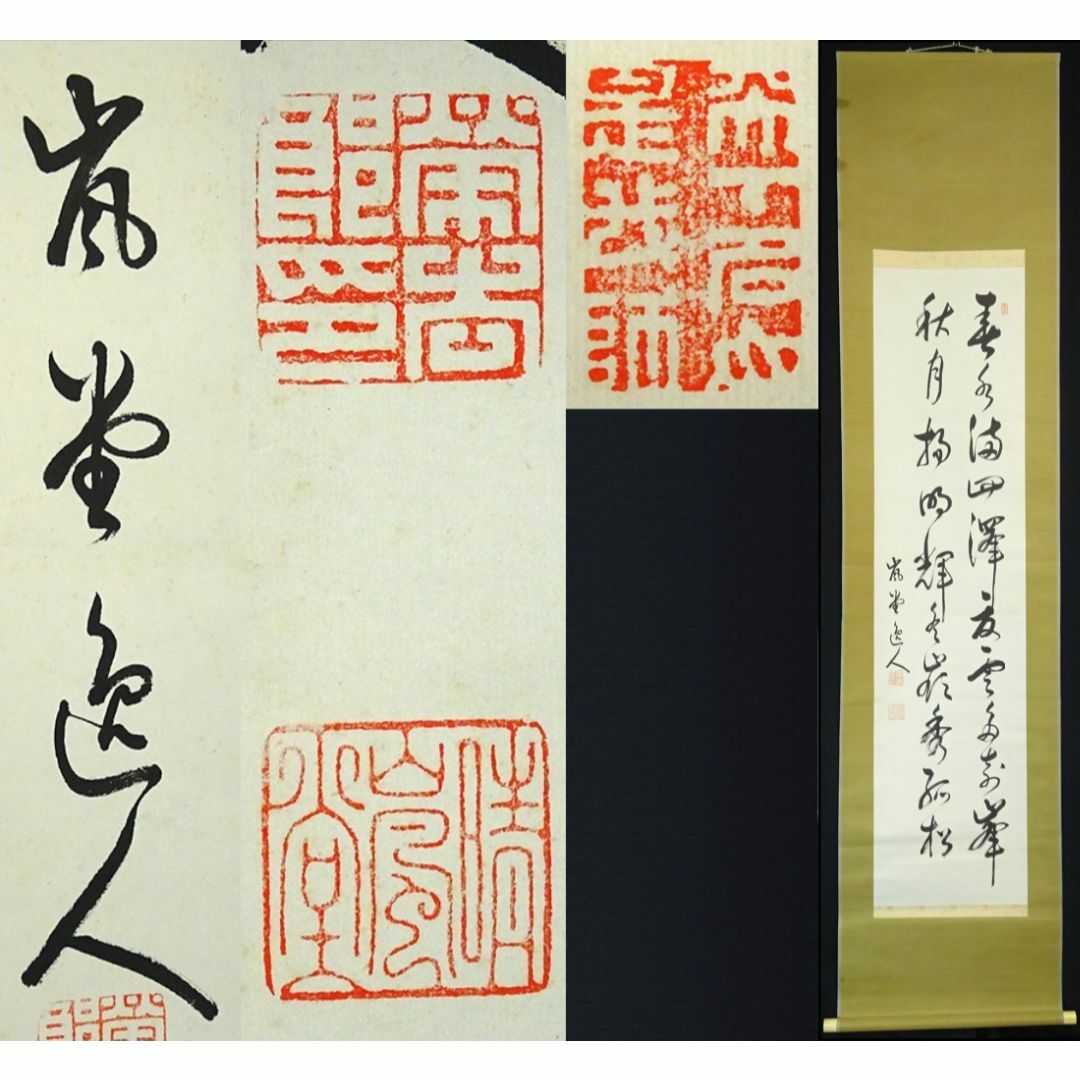 嵐堂逸人
春水満四澤夏雲多奇峯
秋月揚明輝冬嶺秀孤松
嵐堂逸人